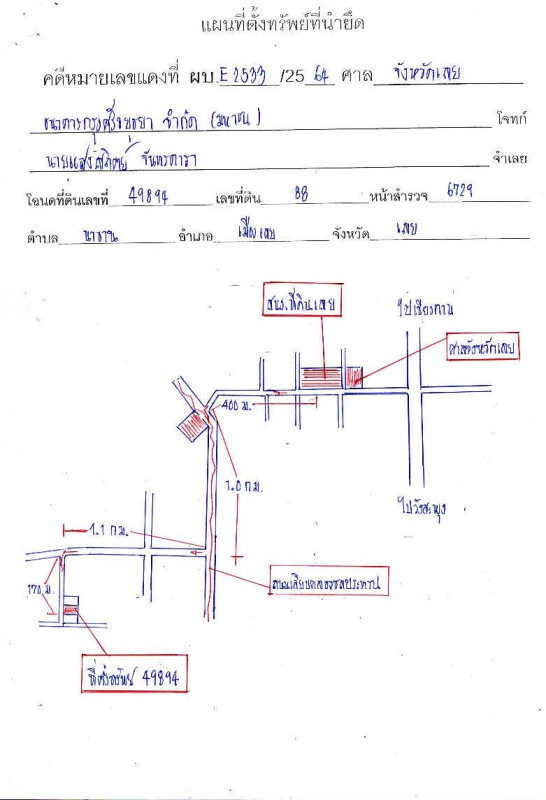 แผนที่ตั้งทรัพย์ที่นำยึด
คดีหมายเลขแดงที่ ผบ.E2533 /25 64 ศาล จังหวัดเลย
ธนาคารกรุงศรีอยุธยา จำกัด (มหาชน) โจทก์
นายแสงอาทิตย์ จันทรดารา จำเลย
โฉนดที่ดินเลขที่ 49894 เลขที่ดิน 88 หน้าสำรวจ 6729
ตำบล นาอาน อำเภอ เมืองเลย จังหวัด เลย
สนง.ที่ดินเลย
ไปเชียงคาน
ศาลจังหวัดเลย
400 ม.
1.0 กม.
ไปวังสะพุง
1.1 กม.
170 ม.
ถนนเลียบคลองชลประทาน
ที่ตั้งทรัพย์ 49894